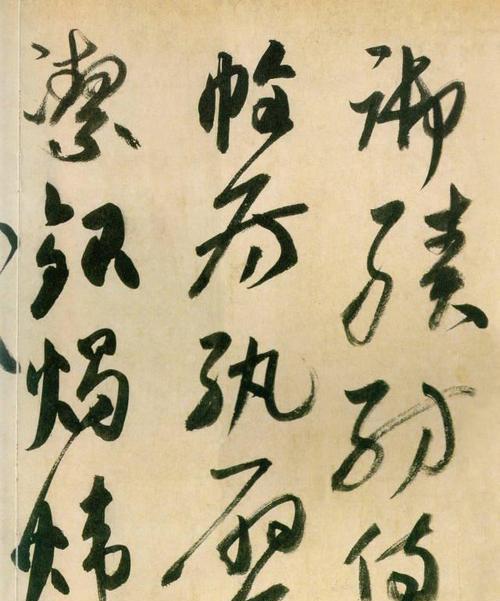 御績紡侍
帷房紈扇
潔銀燭煒